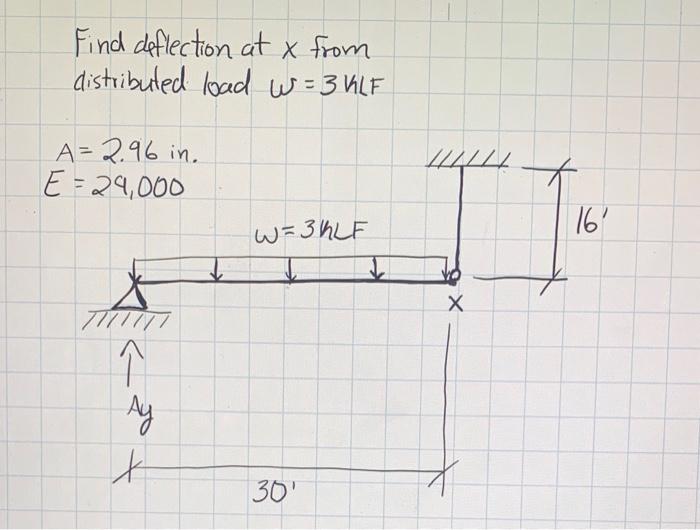 Find deflection at x from
distributed load w = 3 KLF
A = 2.96 in.
E = 29,000
w = 3 KLF
16'
x
Ay
30'